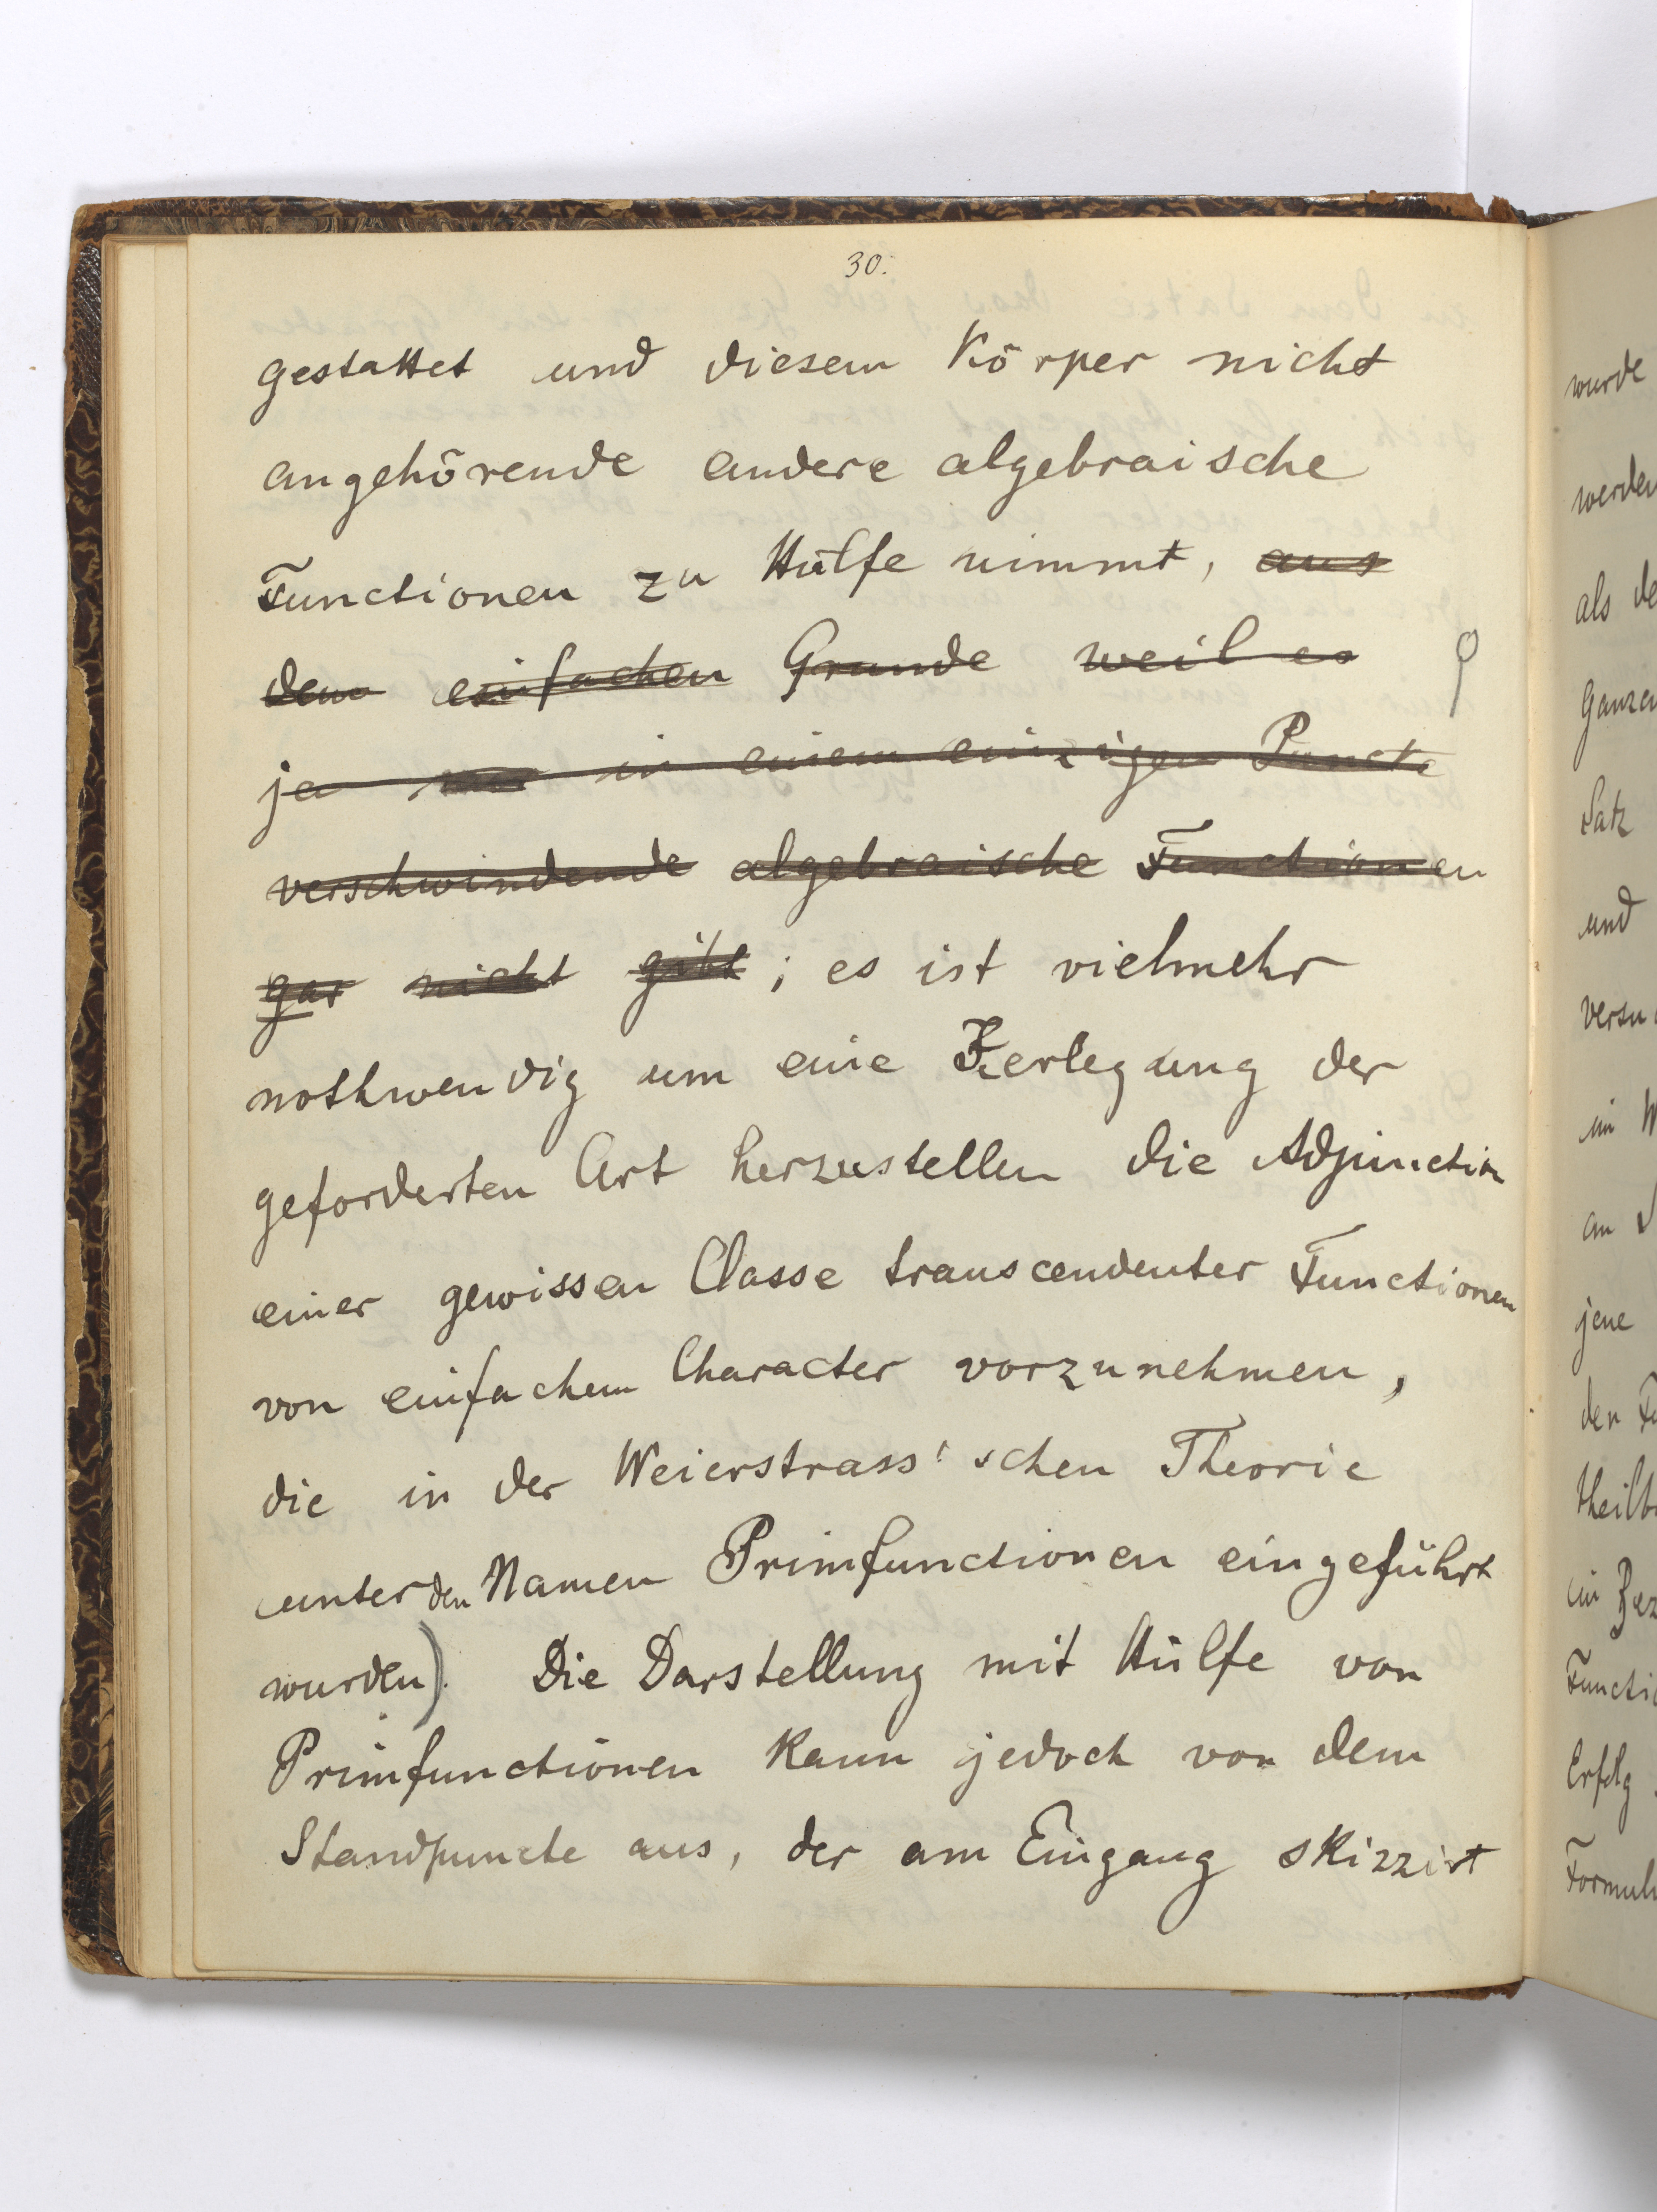 30.
gestattet und diesem Körper nicht
angehörende andere algebraische
Functionen zu Hülfe nimmt, aus
dem einfachen Grunde weil es
ja nur in einem einzigen Puncte
verschwindende algebraische Functionen
gar nicht gibt; es ist vielmehr
nothwendig um eine Zerlegung der
geforderten Art herzustellen die Adjunction
einer gewissen Classe transcendenter Functionen
von einfachem Character vorzunehmen,
die in der Weierstrass'schen Theorie
unter den Namen Primfunctionen eingeführt
wurden). Die Darstellung mit Hülfe von
Primfunctionen kann jedoch von dem
Standpuncte aus, der am Eingang skizzirt
wurde
werden
als de
Ganzen
Satz
und
versu
im W
an
jene
den Fu
theilb
in Bez
Functio
Erfolg
Formul